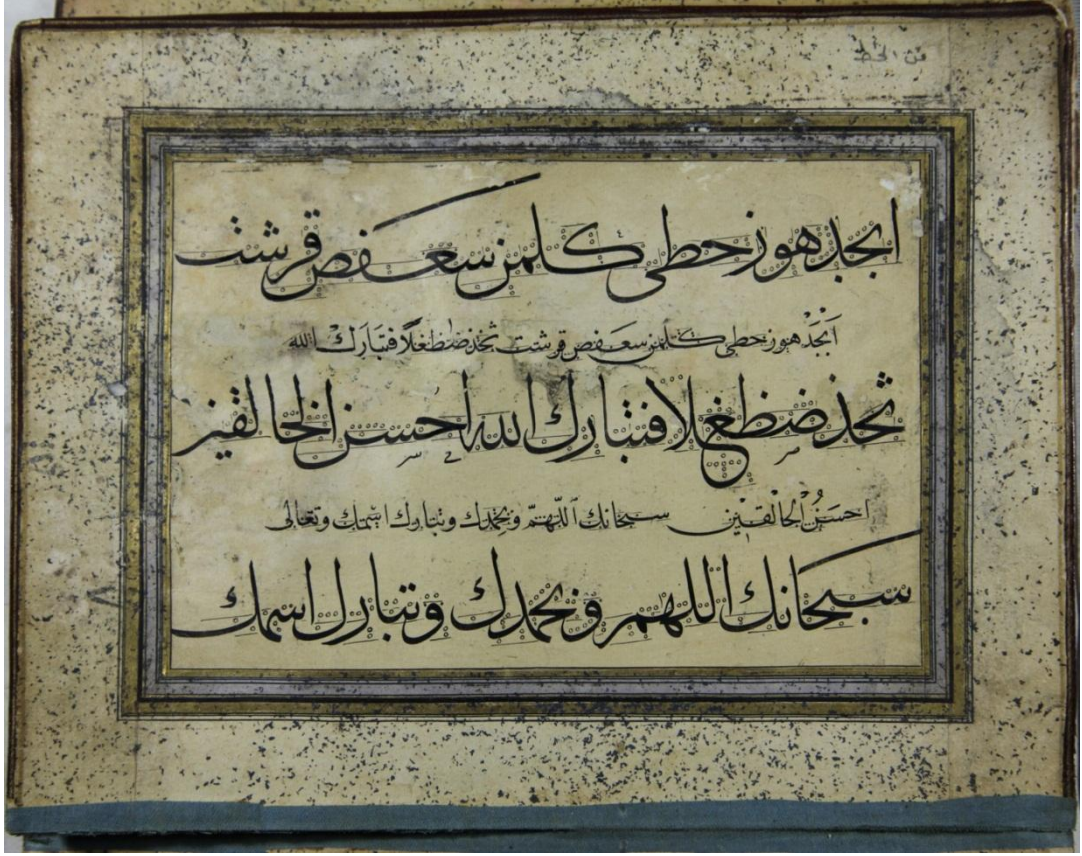 فن خط
ابجد هوز حطي كلمن سعفص قرشت
اَبْجَدْ هوز حطي كلمن سعفص قرشت ثخذ ضظغلاً فتبارَكْ الله
ثخذ ضظغلا فتبارك الله احسن الخالقين
احسَنُ الْخالْقين سبحانك اللّهمّ وبحمدك وتبارك اسمك وتعالى
سبحانك اللهم وبحمدك وتبارك اسمك